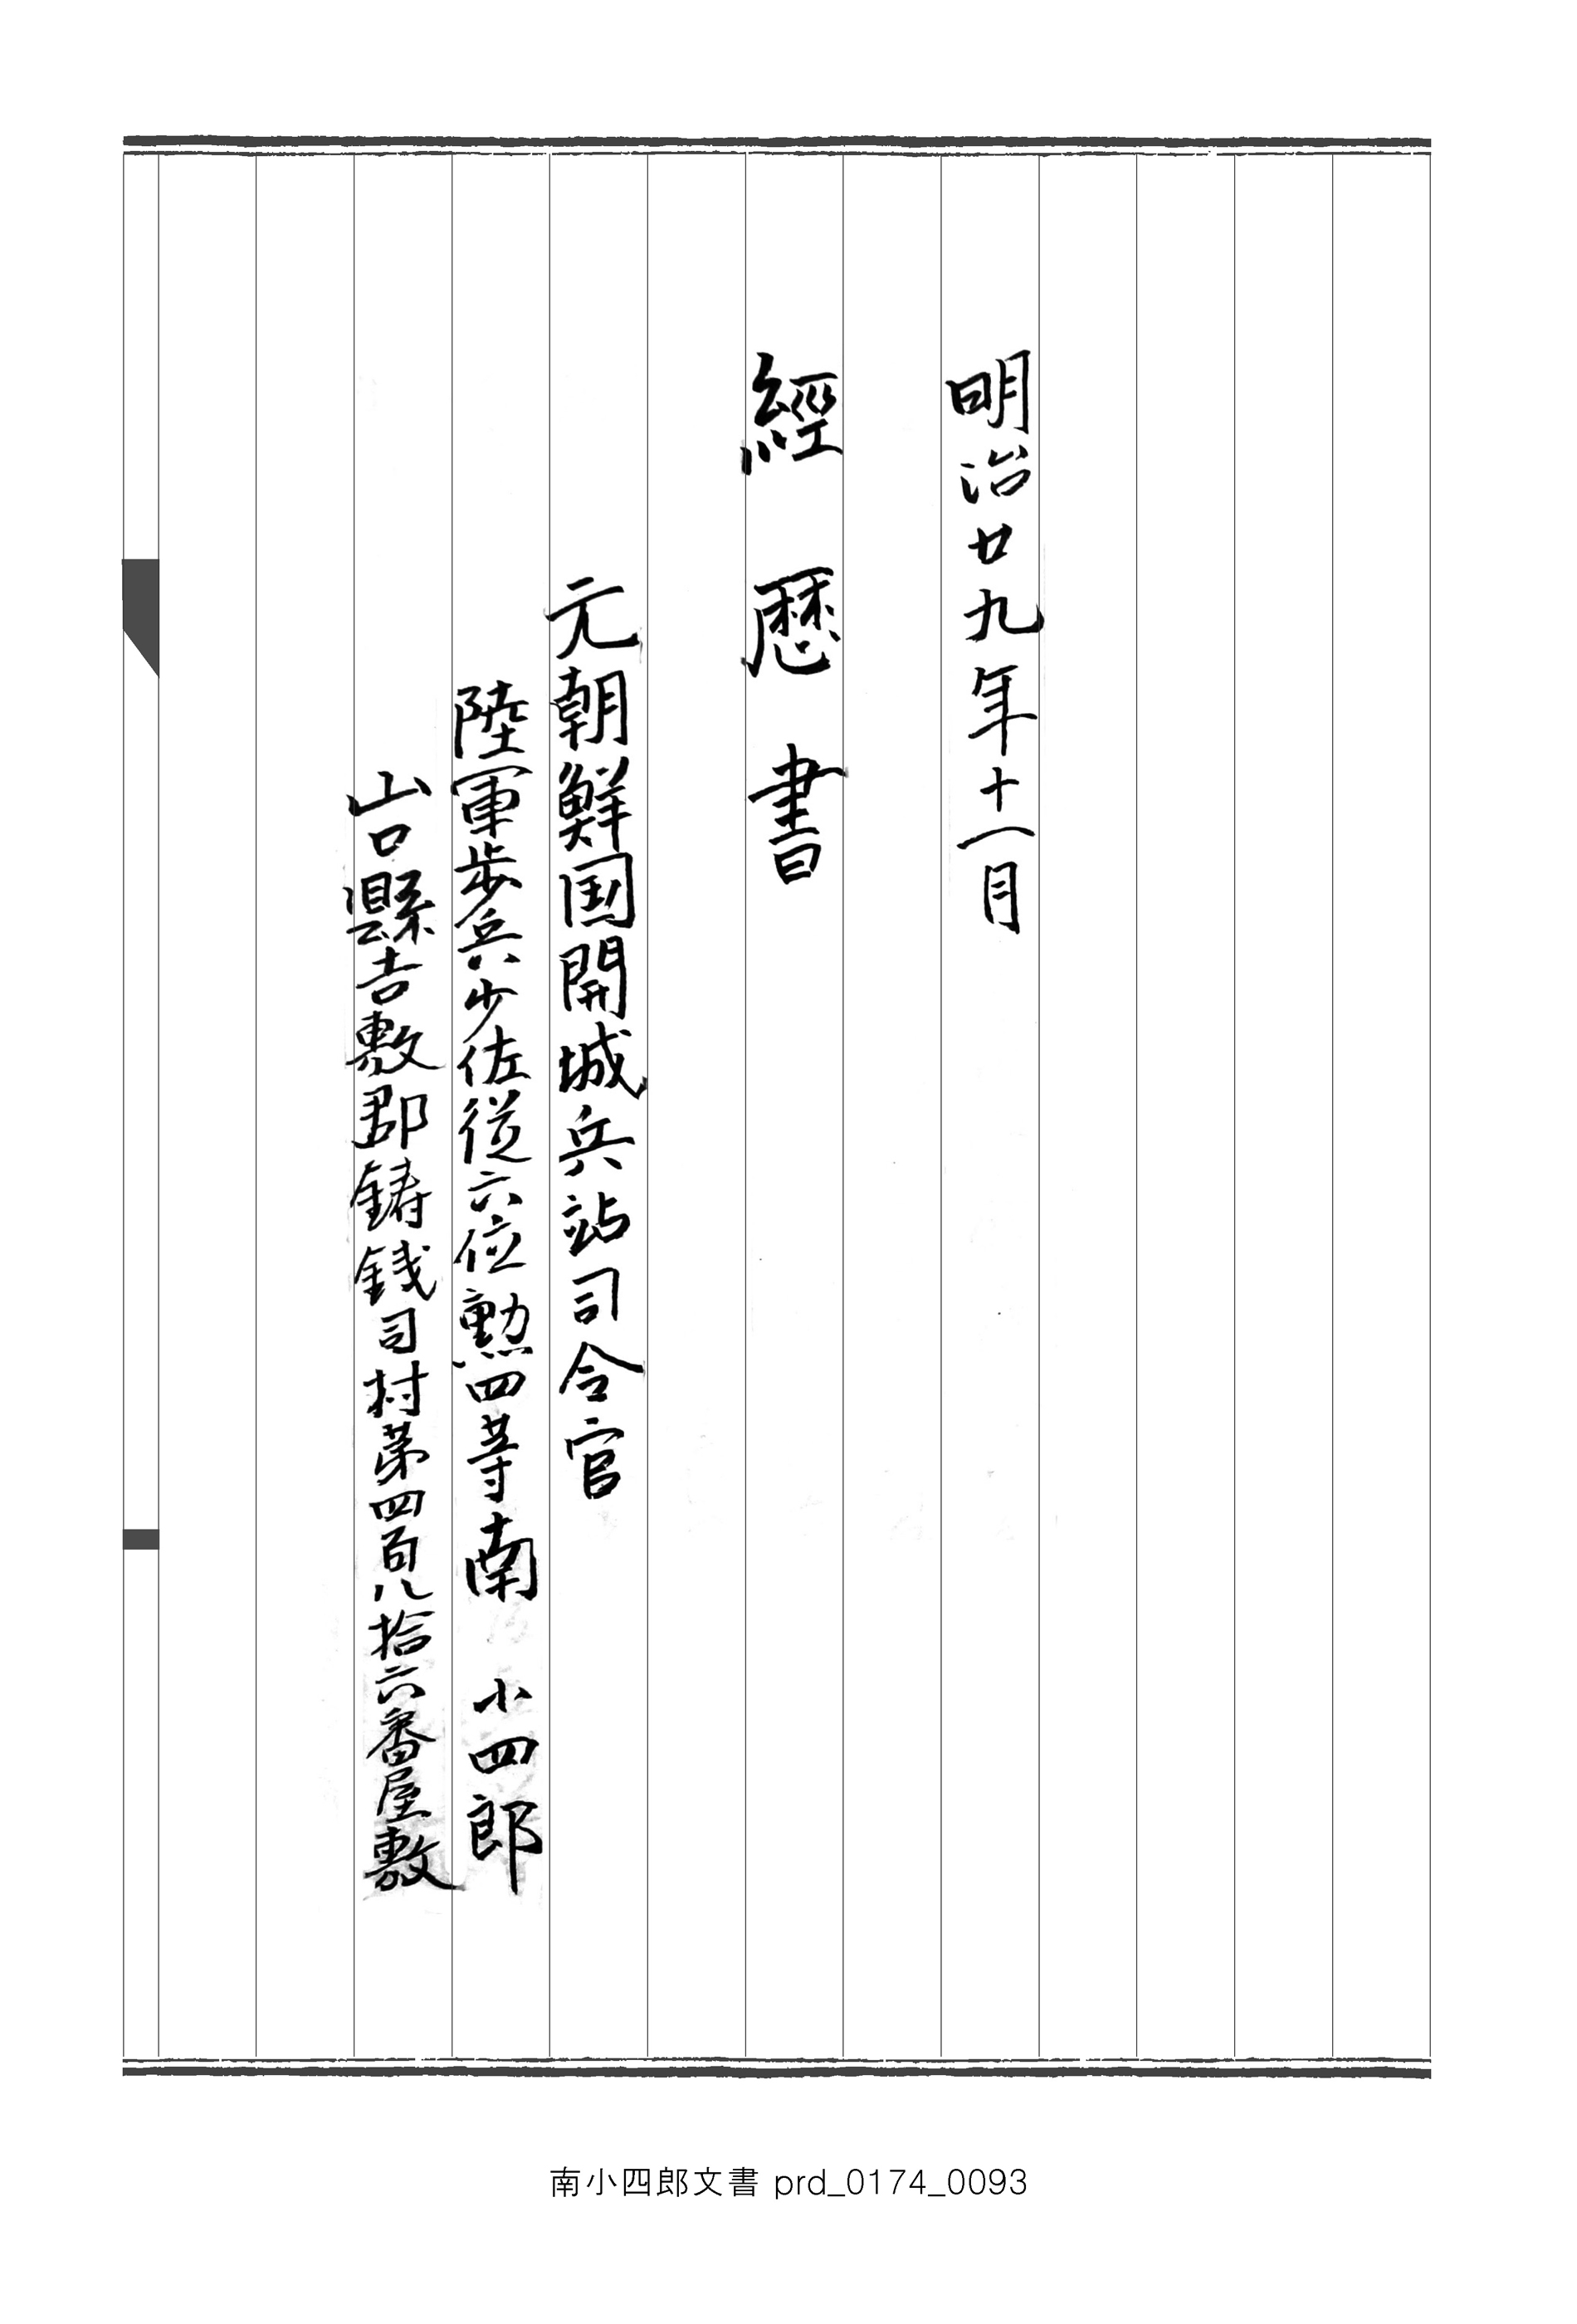 明治廿九年十一月
經歴書
元朝鮮国開城兵站司令官
陸軍歩兵少佐従六位勲四等南 小四郎
山口縣吉敷郡鋳銭司村第四百八拾六番屋敷
南小四郎文書 prd_0174_0093